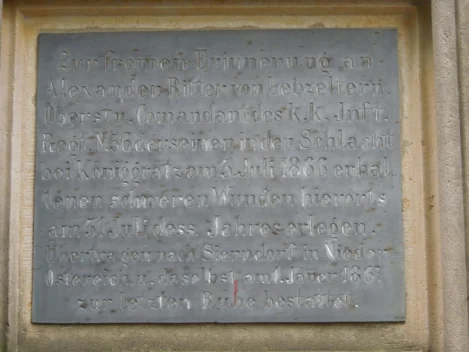 Zur frommen Erinnerung an
Alexander Ritter von Lebzeltern.
Oberst u. Comandant des k.k. Inft.
Regt. der seinen in der Schlacht
bei Königgrätz am 3. Juli 1866 erhal
tenen schweren Wunden hierorts
am 31. Juli dess. Jahres erlegen.
Übertragen nach Sierndorf in Nieder
Österreich u. daselbst am 1. Janer 1867
zur letzten Ruhe bestattet.